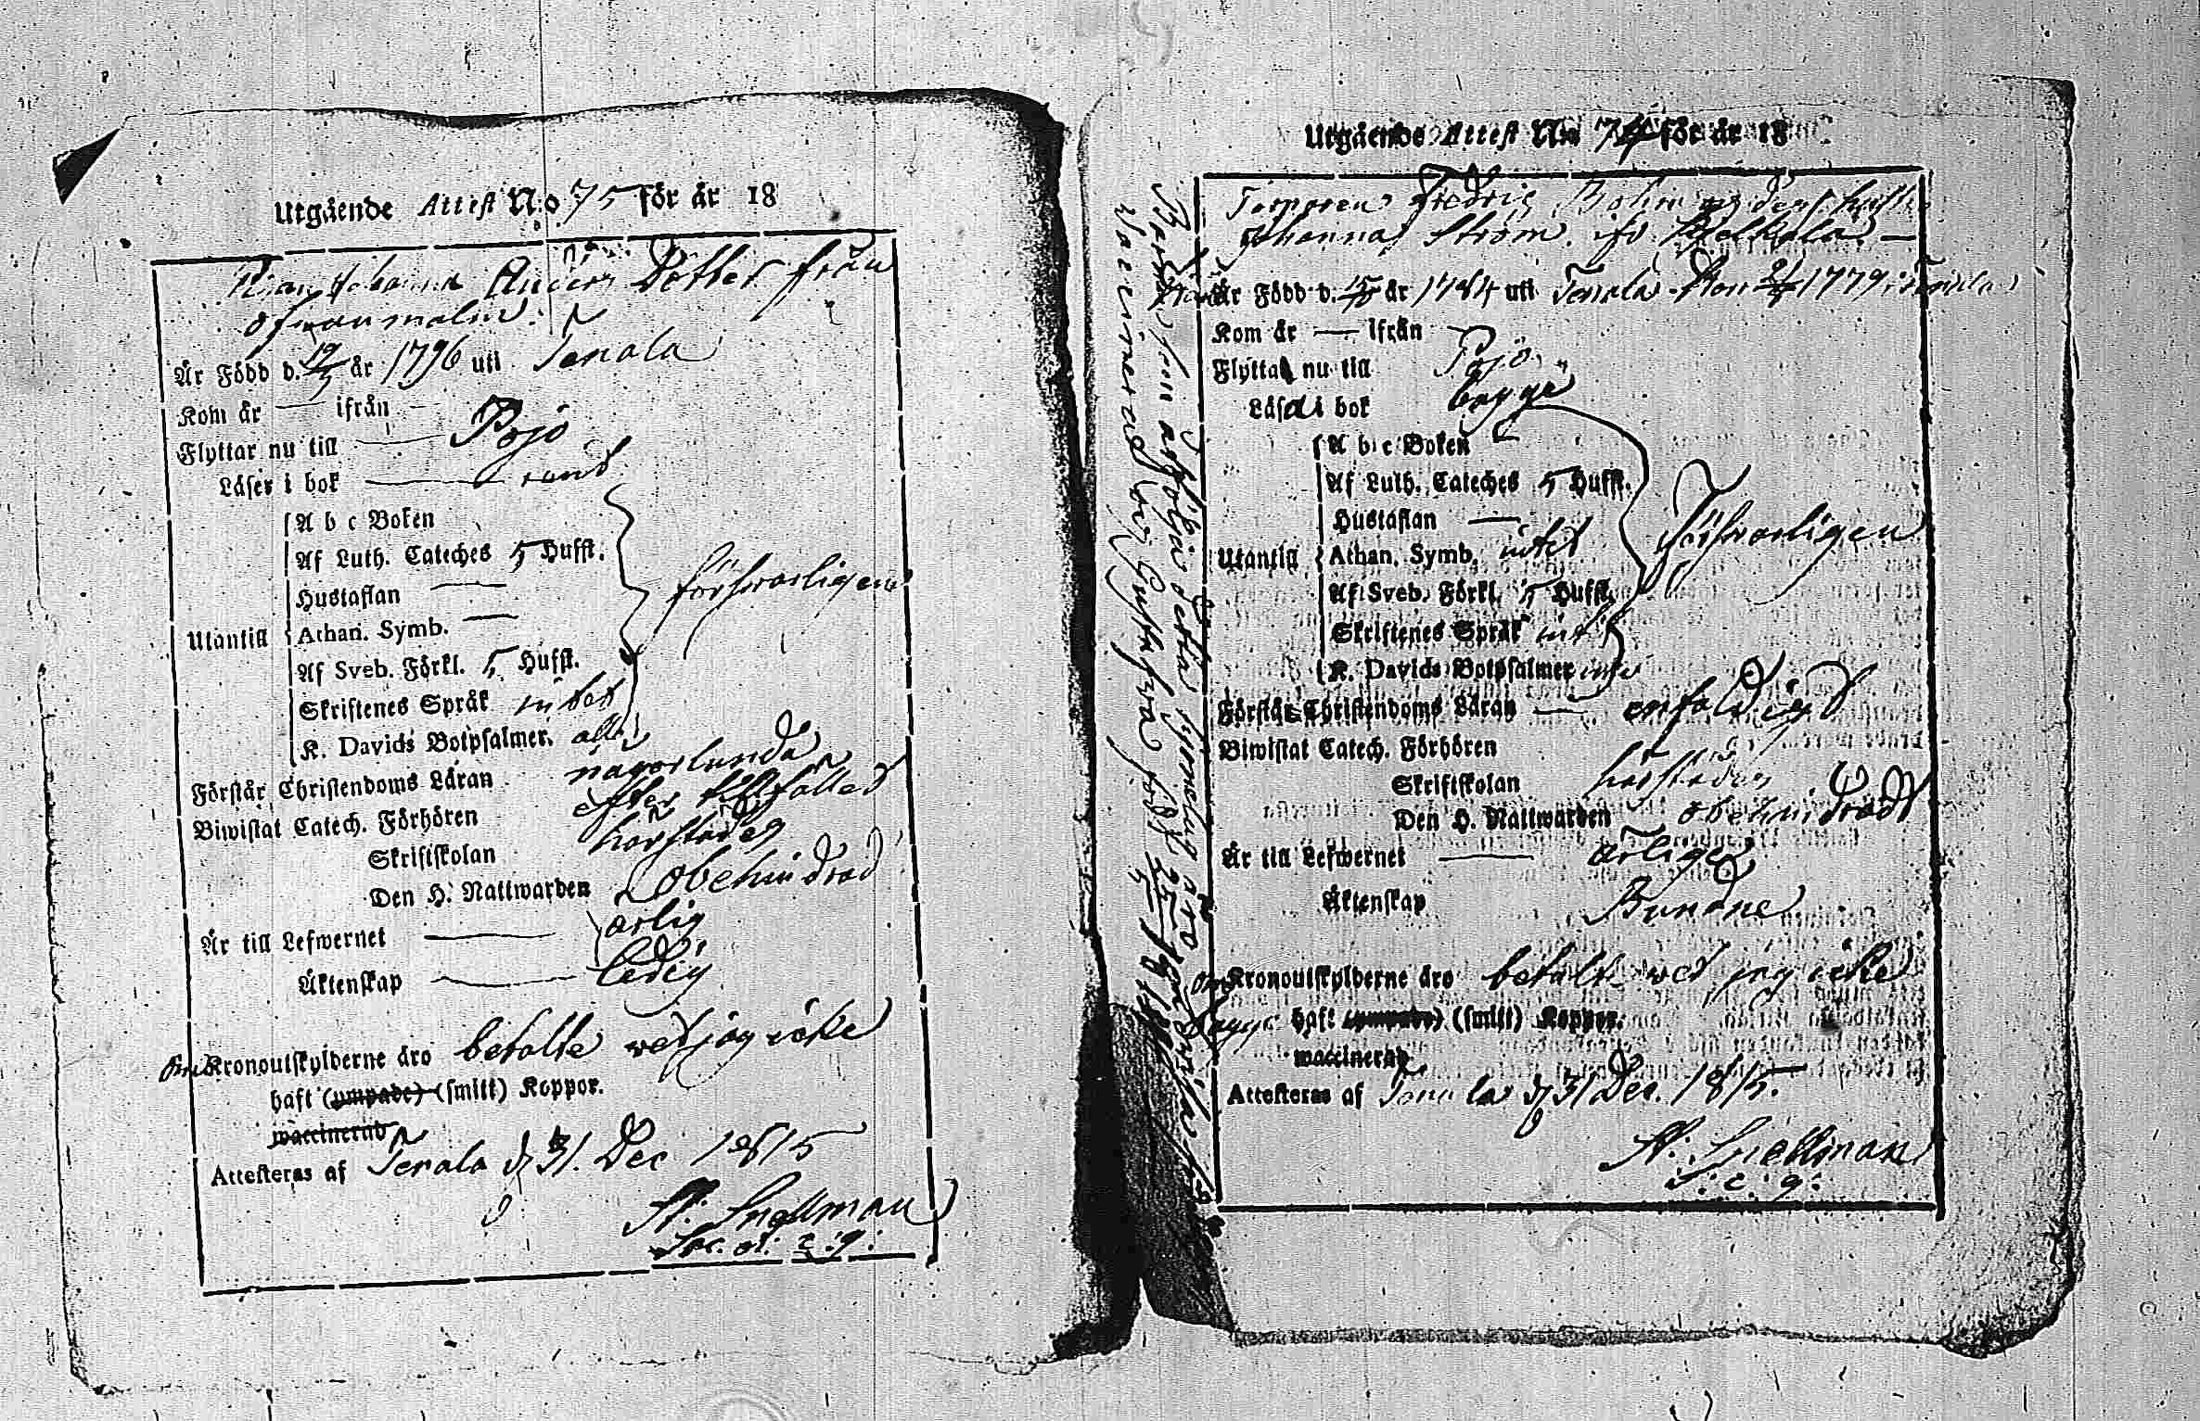 Utgående Attest N:o 75 för år 18
Pigan Johanna Anders Dotter från
Ofvanmalm.
Är Född d. 19/3 år 1796 uti Tenala
Kom år — ifrån —
Flyttar nu till — Pojo
Läser i bok — rent
A b c Boken
Af Luth. Cateches 5 Hufst.
Hustaflan —
försvarligen
Utantill
Athan. Symb. —
Af Sveb. Förkl. 5 Hufst.
Skriftenes Språk intet
K. Davids Botpsalmer. alla
Förstår Christendoms Läran någorlunda
Biwistat Catech. Förhören efter tillfälle
Skriftskolan härstädes
Den H. Nattwarden obehindrad
Är till Lefwernet — ärlig
Äktenskap — ledig
Om Kronoutskylderne äro betalte vet jag icke
haft (ympade) (smitt) Koppor.
waccinerad
Attesteras af Tenala d. 31. Dec 1815
A. Snellman
Utgående Attest N:o 74 för år 18
Torparen Fredric Bohm och dess hustru
Johanna Ström ifr.
Är Född d. år 1784 uti Tenala. Hon 1779 i Tenala
Kom år — ifrån —
Flytta nu till Pojo
Läsa i bok begge
A b c Boken —
Af Luth. Cateches 5 Hufst.
Hustaflan —
försvarligen
Utantill
Athan. Symb. intet
Af Sveb. Förkl. 5 Hufst.
Skriftenes Språk int
K. Davids Botpsalmer
Förstår Christendoms Läran — enfaldigt
Biwistat Catech. Förhören
Skriftskolan härstädes
Den H. Nattwarden obehindradt
Är till Lefwernet — ärlige
Äktenskap Bundne
Om Kronoutskylderne äro betalt vet jag icke
begge haft (ympade) (smitt) Koppor.
waccinerad
Attesteras af Tenala d. 31 Dec. 1815.
A. Snellman
Barn som åtfölja detta äro
vaccinerad Gustafva född 25/5